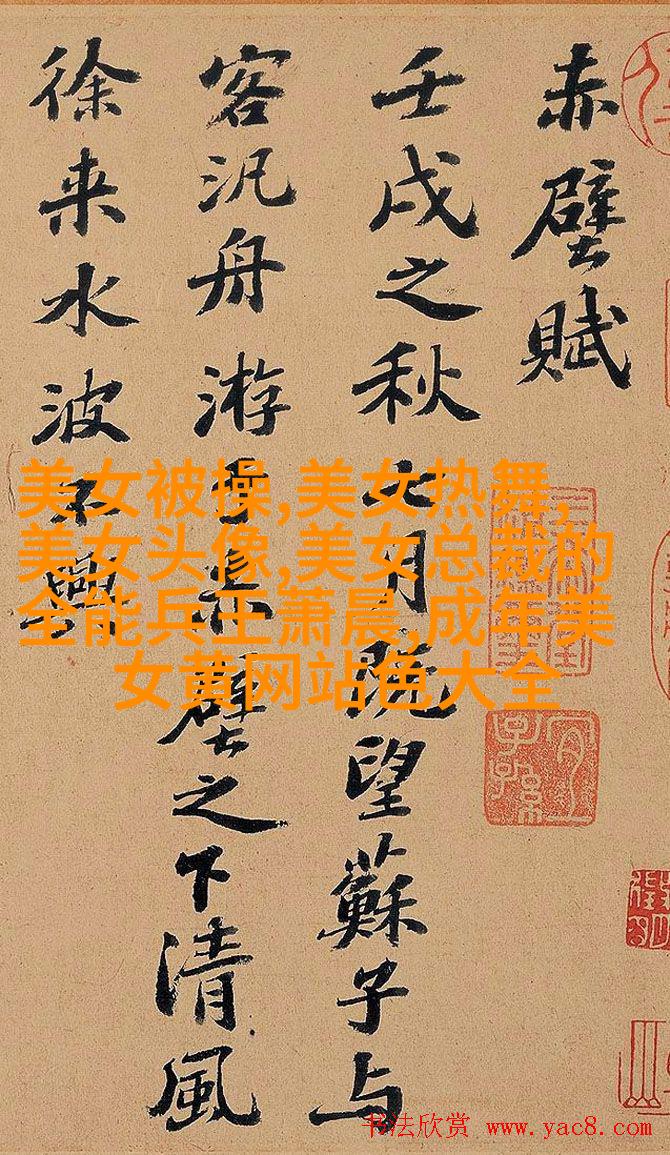 赤壁賦
壬戌之秋七月既望蘇子与
客汎舟游于赤壁之下清風
徐来水波不興
美女被操,美女热舞,
美女头像,美女总裁的
全能兵王萧晨,成年美
女黄网站色大全
书法欣赏 www.yac8.com